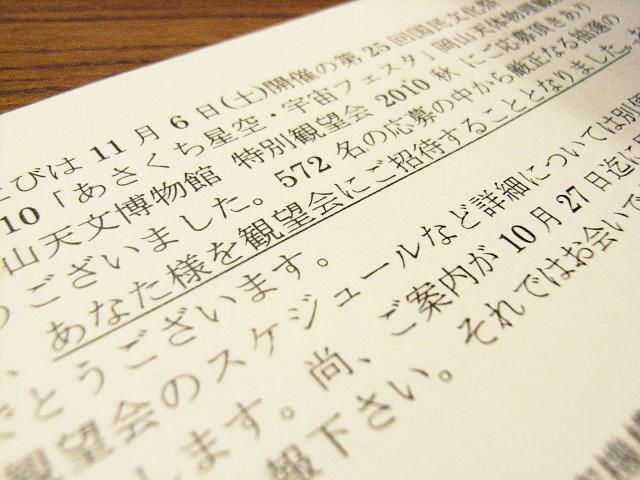 びは 11 月 6 日(土)開催の第 25 回国民文化祭
10「あさくち星空・宇宙フェスタ」岡山天体物理観
山天文博物館 特別観望会 2010 秋」にご応募頂きあり
うございました。572 名の応募の中から厳正なる抽選の
あなた様を観望会にご招待することとなりました。
でとうございます。
観望会のスケジュールなど詳細については別
します。尚、ご案内が 10 月 27 日迄に
報下さい。それではお会いで